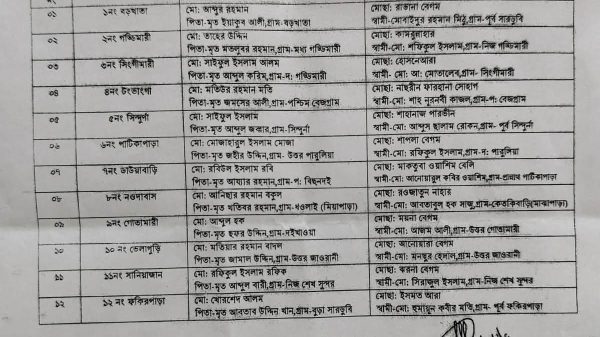 নং
০১ ১নং বড়খাতা মো: আব্দুর রহমান মোছা: রাভানা বেগম
পিতা-মৃত ইয়াকুব আলী,গ্রাম-বড়খাতা স্বামী-মো: মোবাইনুর রহমান মিঠু,গ্রাম-পূর্ব সারডুবি
০২ ২নং গড্ডিমারী মো: তাহের উদ্দিন মোছা: কামরুন্নাহার
পিতা-মৃত মতলুবর রহমান,গ্রাম-মধ্য গড্ডিমারী স্বামী-মো: শফিকুল ইসলাম,গ্রাম-নিজ গড্ডিমারী
০৩ ৩নং সিংগীমারী মো: সাইফুল ইসলাম আলম মোছা: হোসনেআরা
পিতা-মৃত আব্দুল করিম,গ্রাম-দ: গড্ডিমারী স্বামী- মো: আ: মোতালেব,গ্রাম- সিংগীমারী
০৪ ৪নং টংভাংগা মো: মতিউর রহমান মতি মোছা: নাছরীন ফারহানা সোহাগ
পিতা-মৃত জমসের আলী,গ্রাম-পশ্চিম বেজগ্রাম স্বামী-মো: শাহ্ নুরনবী কাজল,গ্রাম-প: বেজগ্রাম
০৫ ৫নং সিন্দুর্ণা মো: সাইফুল ইসলাম মোছা: শাহানাজ পারভীন
পিতা-মৃত আব্দুল জব্বার,গ্রাম-সিন্দুর্না স্বামী-মো: আব্দুস ছালাম রোকন,গ্রাম- পূর্ব সিন্দুর্না
০৬ ৬নং পাটিকাপাড়া মো: মোজাহারুল ইসলাম মোজা মোছা: শাপলা বেগম
পিতা-মৃত জহীর উদ্দিন,গ্রাম- উত্তর পারুলিয়া স্বামী-মো: রফিকুল ইসলাম,গ্রাম-দ: পারুলিয়া
০৭ ৭নং ডাউয়াবাড়ি মো: রবিউল ইসলাম রবি মোছা: মাকতুবা ওয়াশিম বেলি
পিতা-মৃত আহ্যার রহমান,গ্রাম-প: বিছনদই স্বামী-মো: আনোয়ারুল কবির ওয়াশিম,গ্রাম-প্রান্নাথ পাটিকাপাড়া
০৮ ৮নং নওদাবাস মো: আনিছার রহমান বকুল মোছা: রওজাতুন নাহার
পিতা-মৃত খতিবর রহমান,গ্রাম-ধওলাই (মিয়াপাড়া) স্বামী-মো: আবতাবুল হক সাজু,গ্রাম-কেতকিবাড়ি(মাঝাপাড়া)
০৯ ৯নং গোতামারী মো: আব্দুল হক মোছা: ময়না বেগম
পিতা-মৃত ছফর উদ্দিন,গ্রাম-দইখাওয়া স্বামী-মো: আজম আলী,গ্রাম-উত্তর গোতামারী
১০ ১০ নং ভেলাগুড়ি মো: মতিয়ার রহমান বাদল মোছা: আনোয়ারা বেগম
পিতা-মৃত জামাল উদ্দিন,গ্রাম-উত্তর জাওরানী স্বামী-মো: মনছুর হেলাল,গ্রাম-উত্তর জাওরানী
১১ ১১নং সানিয়াজান মো: রফিকুল ইসলাম রফিক মোছা: ঝরনা বেগম
পিতা-মৃত আব্দুল বারী,গ্রাম-নিজ শেখ সুন্দর স্বামী-মো: সিরাজুল ইসলাম,গ্রাম-নিজ শেখ সুন্দর
১২ ১২ নং ফকিরপাড়া মো: খোরশেদ আলম মোছা: ইসমত আরা
পিতা-মৃত আবতাব উদ্দিন খান,গ্রাম-বুড়া সারডুবি স্বামী-মো: হুমায়ুন কবীর মতি,গ্রাম- পূর্ব ফকিরপাড়া